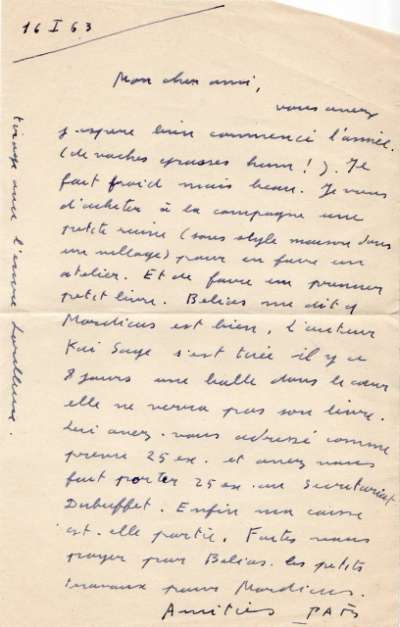 16 I 63
Mon cher ami,
vous avez
j'espère bien commencé l'année.
(de vaches grasses hum!). Il
fait froid mais beau. Je viens
d'acheter à la campagne une
petite ruine (sous style maison dans
un village) pour en faire un
atelier. Et de faire un premier
petit livre. Belias me dit q
Mordicus est bien, l'auteur
Kai Sage s'est tirée il y a
8 jours une balle dans le cœur
elle ne verra pas son livre.
Lui avez-vous adressé comme
prévu 25 ex. et avez vous
fait porter 25 ex. au Secrétariat
Dubuffet. Enfin ma caisse
est-elle partie. Faites vous
payer par Belias les petits
travaux pour Mordicus.
Amitiés PAB
tirage avec l'encre